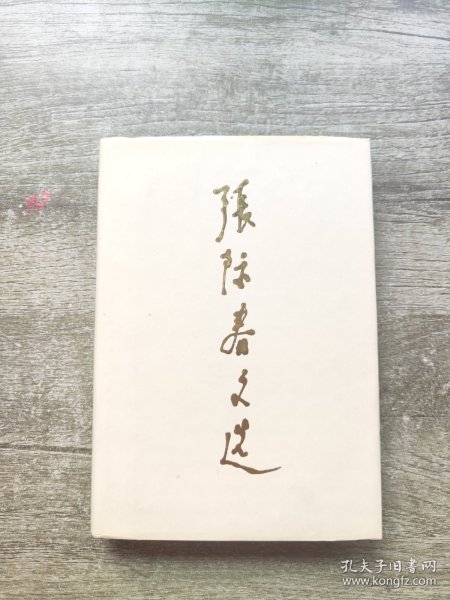 張防春文选
孔夫子旧书网
www.kongfz.com